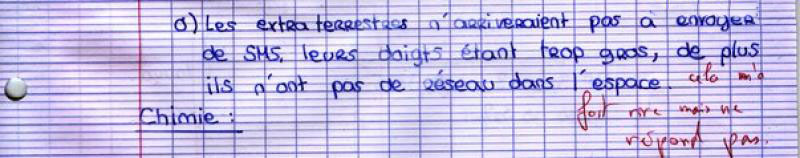 a) Les extraterrestres n'arriveraient pas à envoyer
de SMS, leurs doigts étant trop gros, de plus
ils n'ont pas de réseau dans l'espace. cela m'a
Chimie : fait rire mais ne
répond pas.